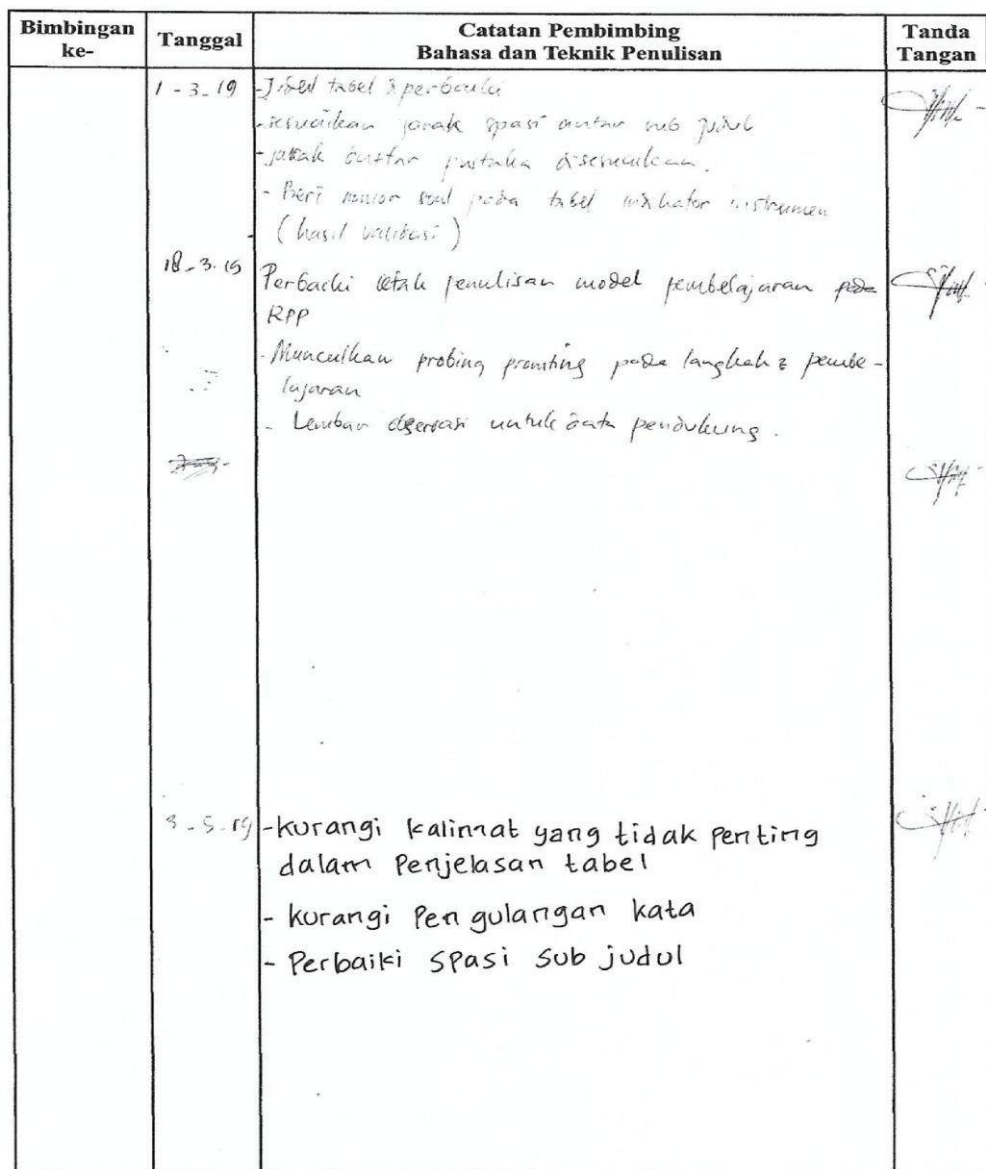 Bimbingan ke-
Tanggal
Catatan Pembimbing
Bahasa dan Teknik Penulisan
Tanda Tangan
1-3-19
- tabel diperbaiki
- sesuaikan jarak spasi antar sub judul
- jarak daftar pustaka disesuaikan.
- Beri nomor soal pada tabel indikator instrumen
(hasil validasi)
18-3-19
Perbaiki letak penulisan model pembelajaran pada
RPP
- Munculkan probing promting pada langkah 2 pembe-
lajaran
- Lembar observasi untuk data pendukung.
-5-19
- kurangi kalimat yang tidak penting
dalam Penjelasan tabel
- kurangi Pengulangan kata
- Perbaiki spasi sub judul